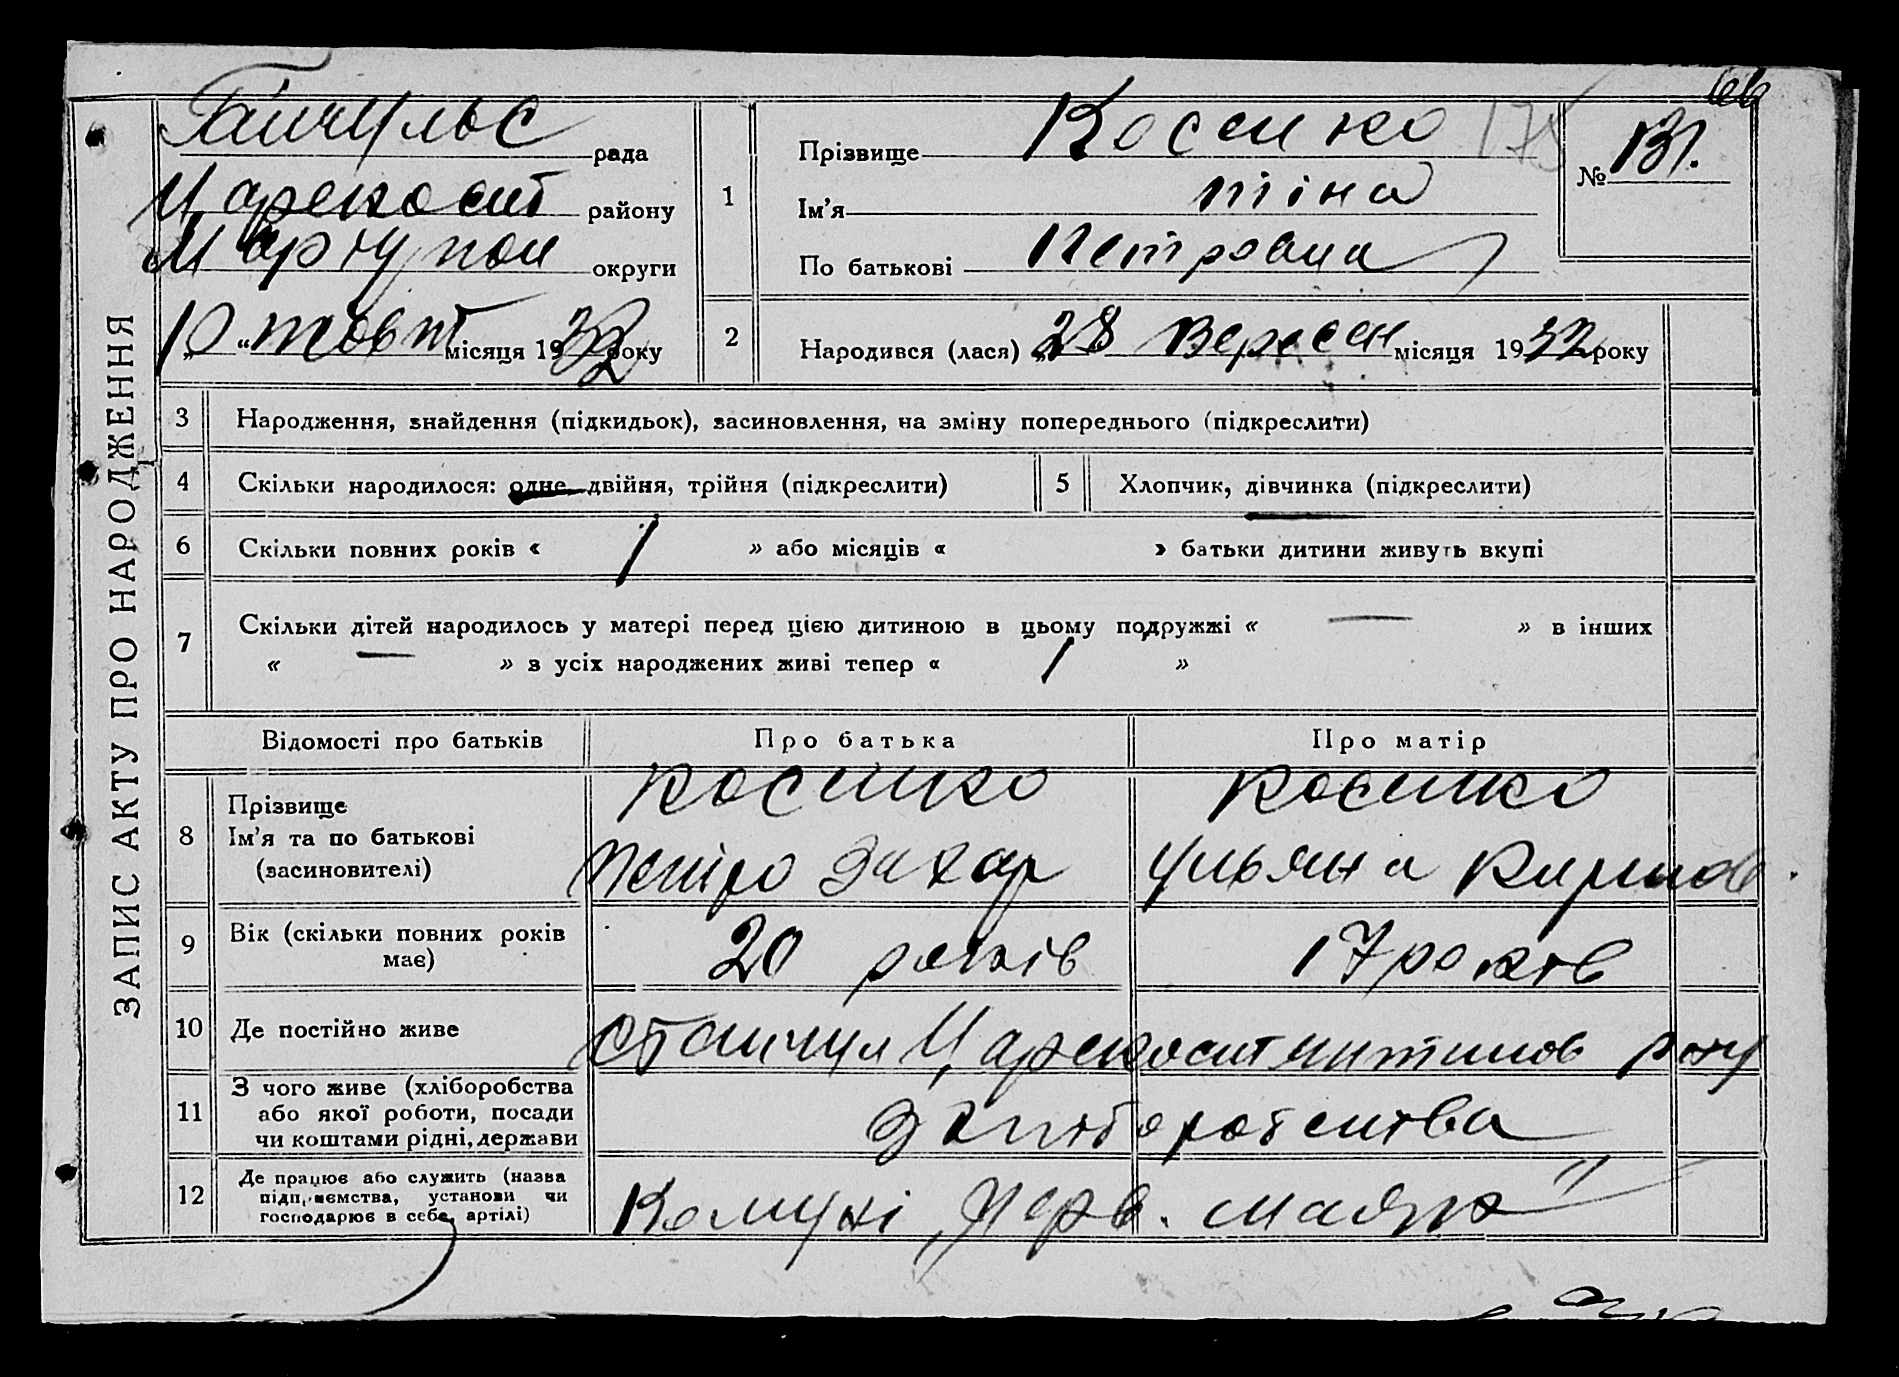 66
ЗАПИС АКТУ ПРО НАРОДЖЕННЯ
Гайчульс рада
Царекост району
Маріупол округи
„10“ жовт місяця 1932 року
1 Прізвище Косенко 175
Ім'я Ніна
По батькові Петровна
№ 131.
2 Народився (лася) „28 Вересен місяця 1932 року
3 Народження, знайдення (підкидьок), засиновлення, на зміну попереднього (підкреслити)
4 Скільки народилося: одне, двійня, трійня (підкреслити) 5 Хлопчик, дівчинка (підкреслити)
6 Скільки повних років « 1 » або місяців « » батьки дитини живуть вкупі
7 Скільки дітей народилось у матері перед цією дитиною в цьому подружжі « — » в інших
« — » з усіх народжених живі тепер « 1 »
Відомості про батьків Про батька Про матір
8 Прізвище Косенко Косенко
Ім'я та по батькові Петро Захар Ульяна Кирилов.
(засиновителі)
9 Вік (скільки повних років має) 20 років 17 років
10 Де постійно живе
11 З чого живе (хліборобства
або якої роботи, посади
чи коштами рідні, держави
З хліборобства
12 Де працює або служить (назва
підприємства, установи чи
господарює в себе, артілі)
Комуні „Черв. маяк"